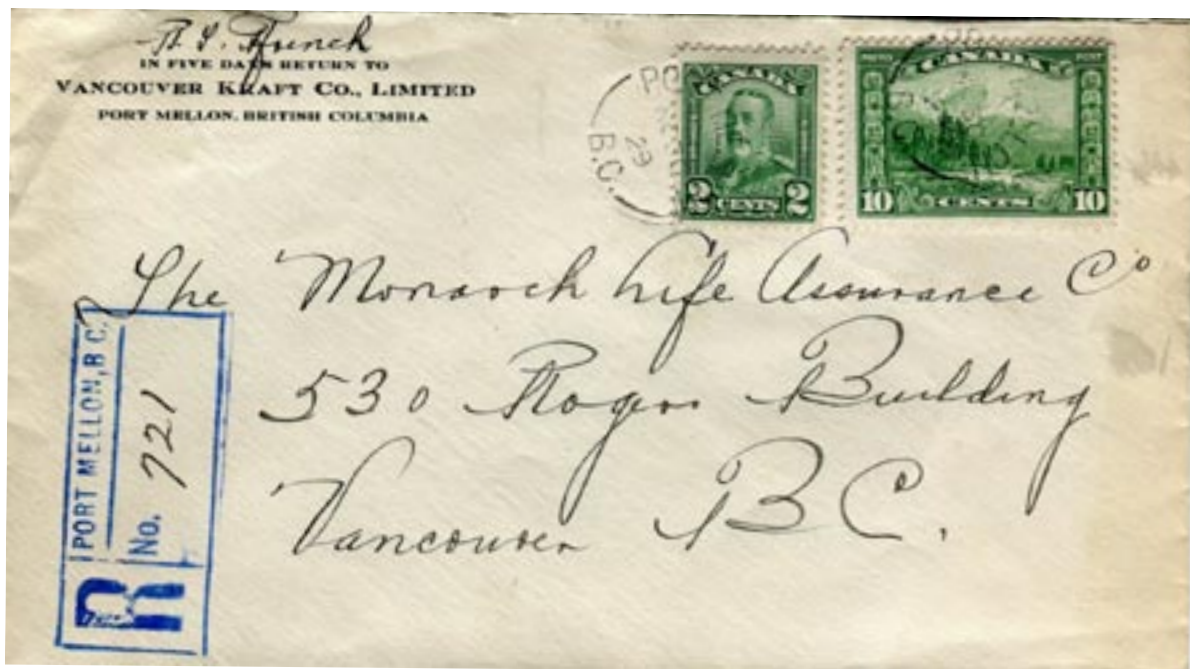 IN FIVE DAYS RETURN TO
VANCOUVER KRAFT CO., LIMITED
PORT MELLON, BRITISH COLUMBIA
PO
29
B.C.
CANADA
2 CENTS 2
CANADA
10 CENTS 10
The Monarch Life Assurance Co
530 Rogers Building
Vancouver B C.
R PORT MELLON, B C.
No. 721